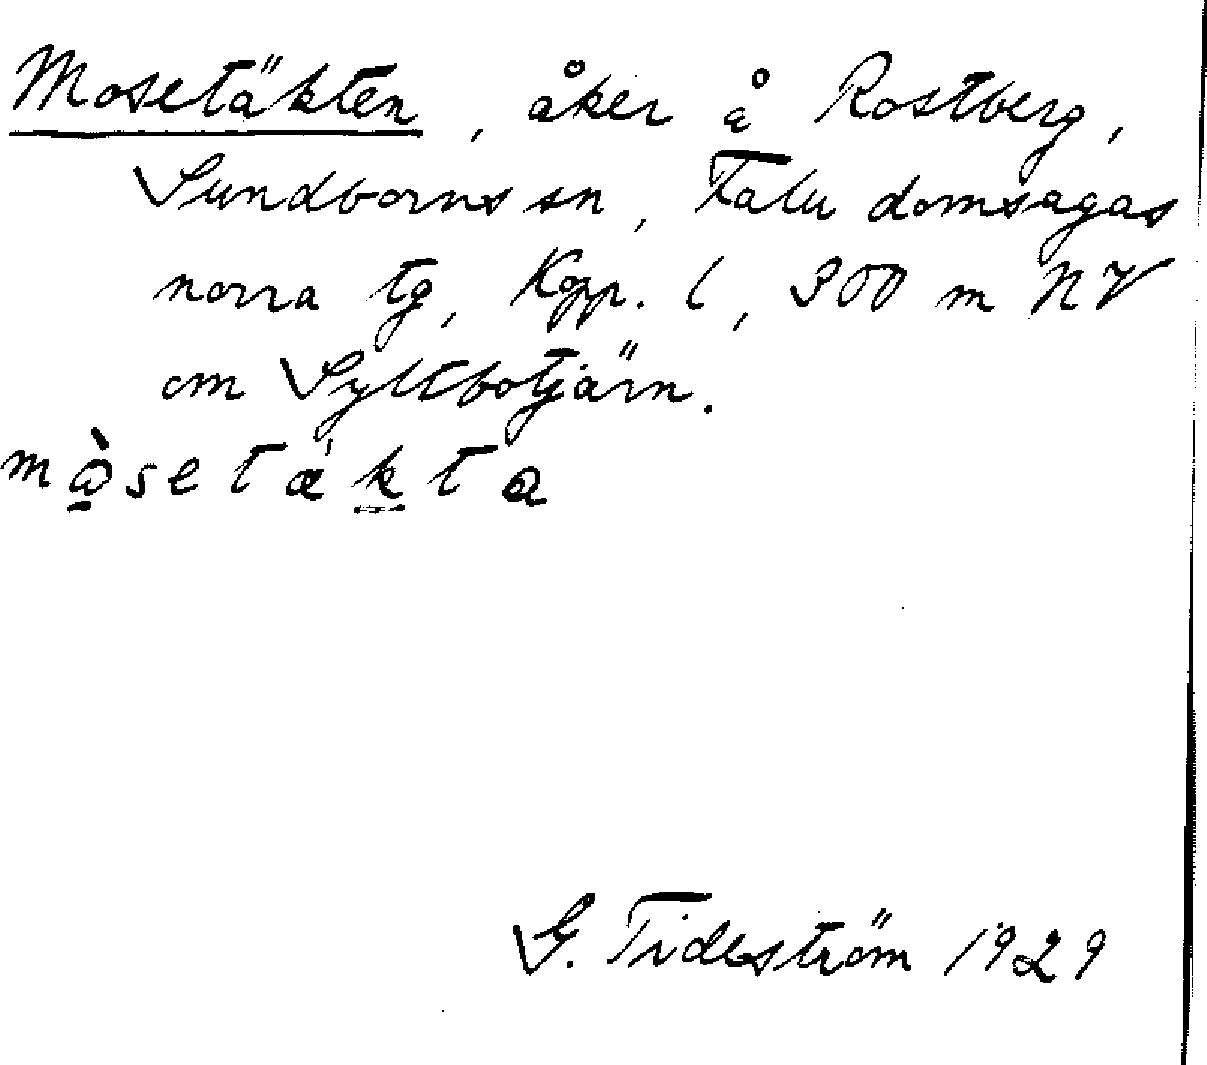 Mosetäkten, åker å Rostberg,
Sundborns sn, Falu domsagas
norra tg, Kopp. l, 300 m NV
om Syltbotjärn.
mo̱̊̀setäk̳ta
G. Tideström 1929